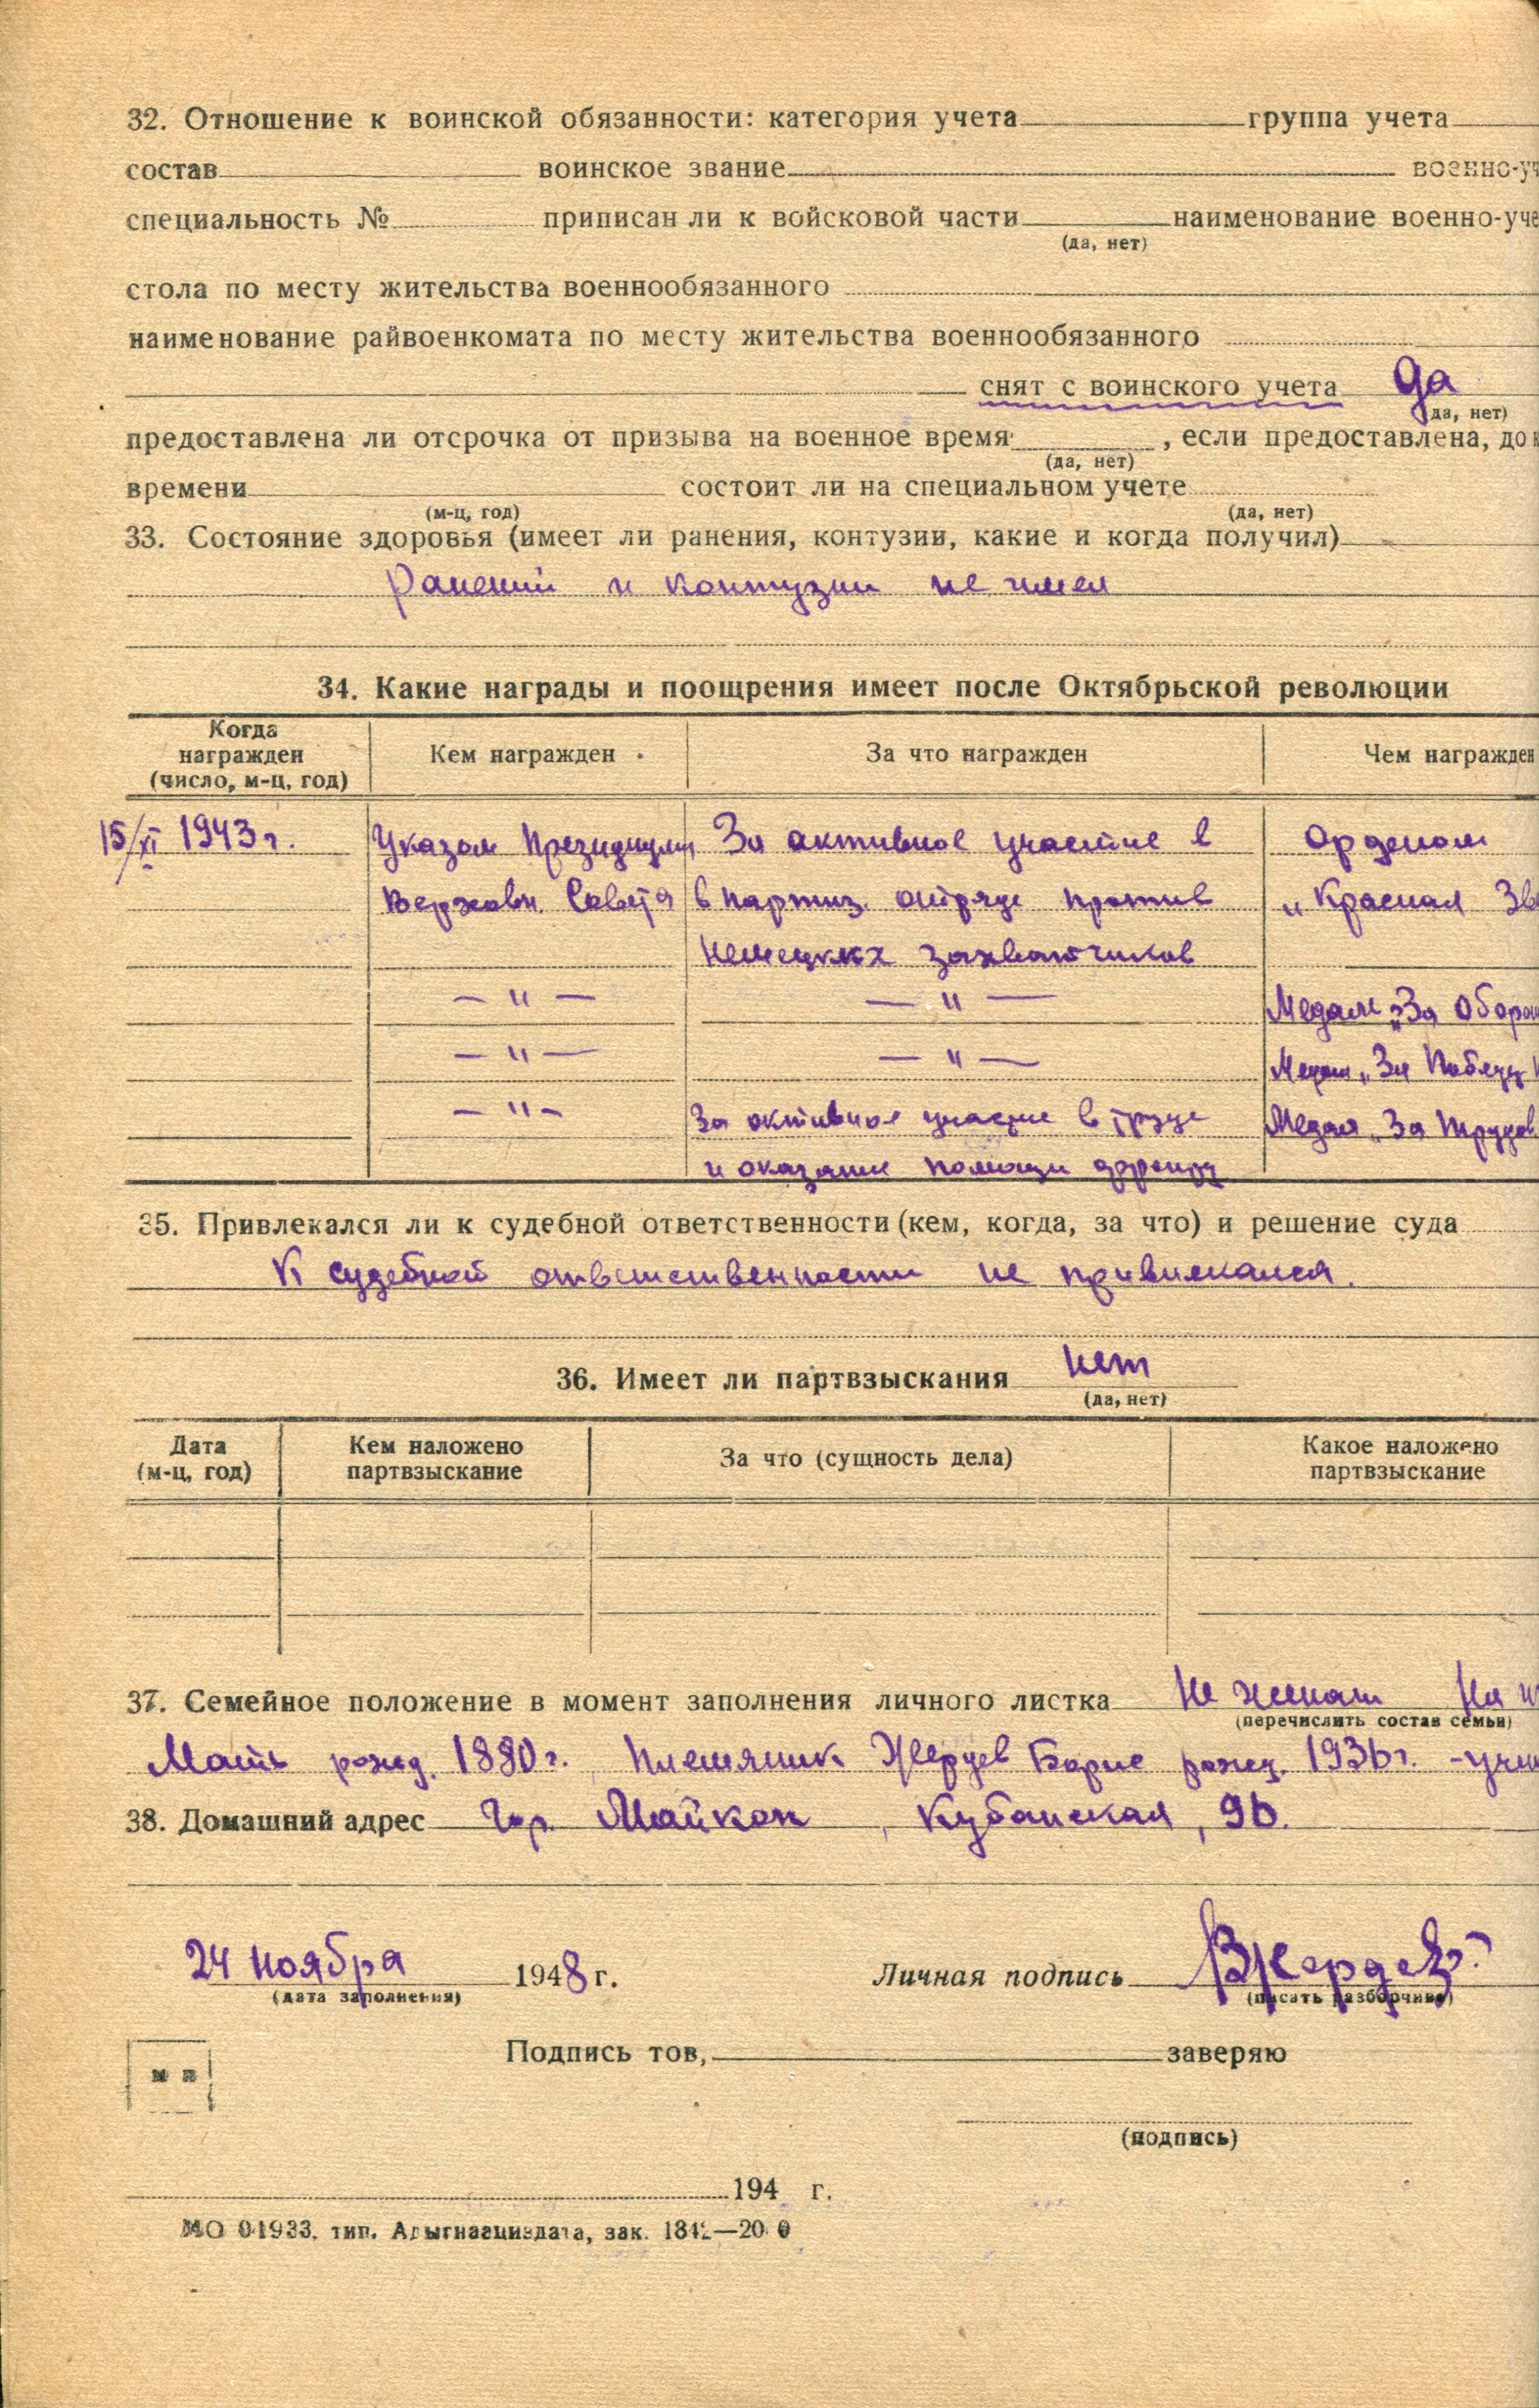 32. Отношение к воинской обязанности: категория учета группа учета
состав воинское звание военно-уч
специальность № приписан ли к войсковой части наименование военно-уче
(да, нет)
стола по месту жительства военнообязанного
наименование райвоенкомата по месту жительства военнообязанного
снят с воинского учета да
(да, нет)
предоставлена ли отсрочка от призыва на военное время , если предоставлена, до к
(да, нет)
времени состоит ли на специальном учете
(м-ц, год) (да, нет)
33. Состояние здоровья (имеет ли ранения, контузии, какие и когда получил)
Ранений и контузии не имел
34. Какие награды и поощрения имеет после Октябрьской революции
Когда награжден (число, м-ц, год) Кем награжден За что награжден Чем награжден
15/XI 1943 г. Указом Президиума За активное участие в Орденом
Верховн. Совета в партиз. отряде против „Красная Зв
немецких захватчиков
— " — — " — Медаль „За Оборон
— " — — " — Медаль „За Победу
— " — За активное участие в труде Медаль „За трудов
и оказание помощи фронту
35. Привлекался ли к судебной ответственности (кем, когда, за что) и решение суда
К судебной ответственности не привлекался.
36. Имеет ли партвзыскания нет
(да, нет)
Дата (м-ц, год) Кем наложено партвзыскание За что (сущность дела) Какое наложено партвзыскание
37. Семейное положение в момент заполнения личного листка Не женат На и
(перечислить состав семьи)
Мать рожд. 1880 г. Племянник Жердев Борис рожд. 1936 г. - учи
38. Домашний адрес Гор. Майкоп, Кубанская, 96.
24 ноября 1948 г. Личная подпись ВЖердев
(дата заполнения) (писать разборчиво)
Подпись тов, заверяю
м п
(подпись)
194 г.
МО 01933. тип. Адыгнациздата, зак. 1842—20 0